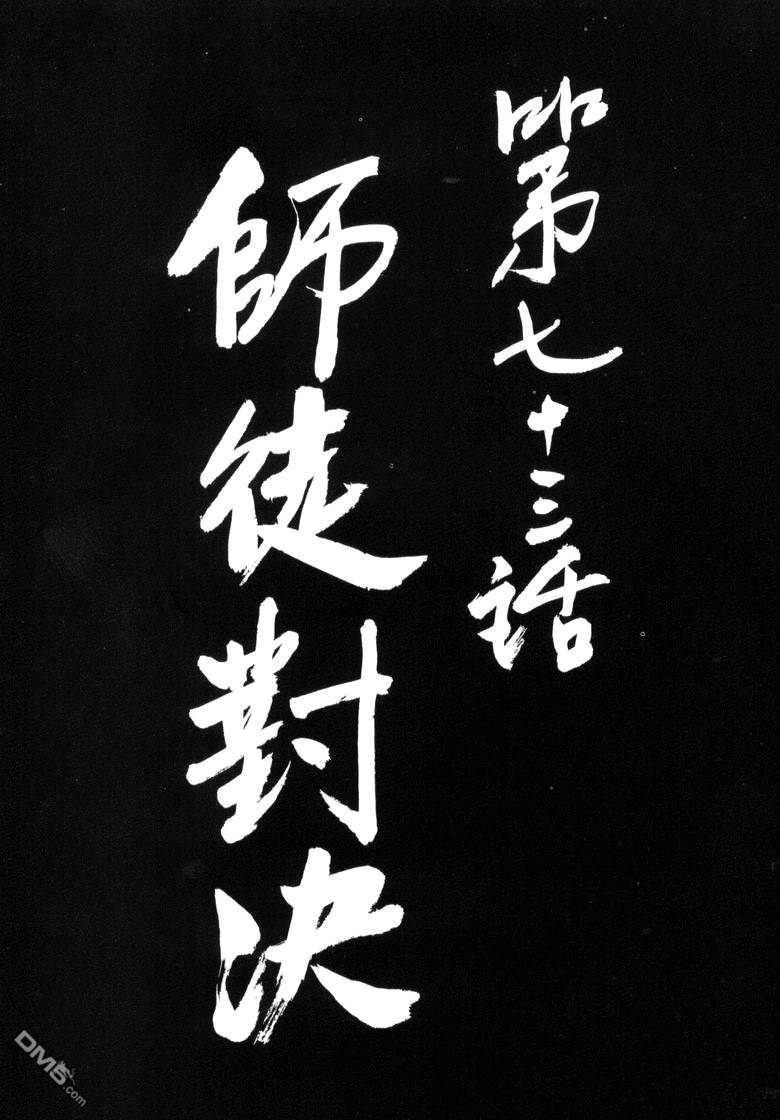 第七十三话
師徒對決
DM5.com